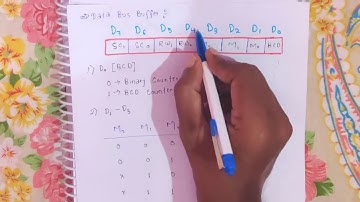 ⇒ Data Bus Buffer :-
D₇ D₆ D₅ D₄ D₃ D₂ D₁ D₀
SC₁ SC₀ RW₁ RW₀ M₁ M₀ BCD
1) D₀ [BCD]
0 → Binary Counter
1 → BCD Counter
2) D₁ - D₃
M₂ M₁ M₀
0 0 0
0 0 1
x 1 0
x 1 1